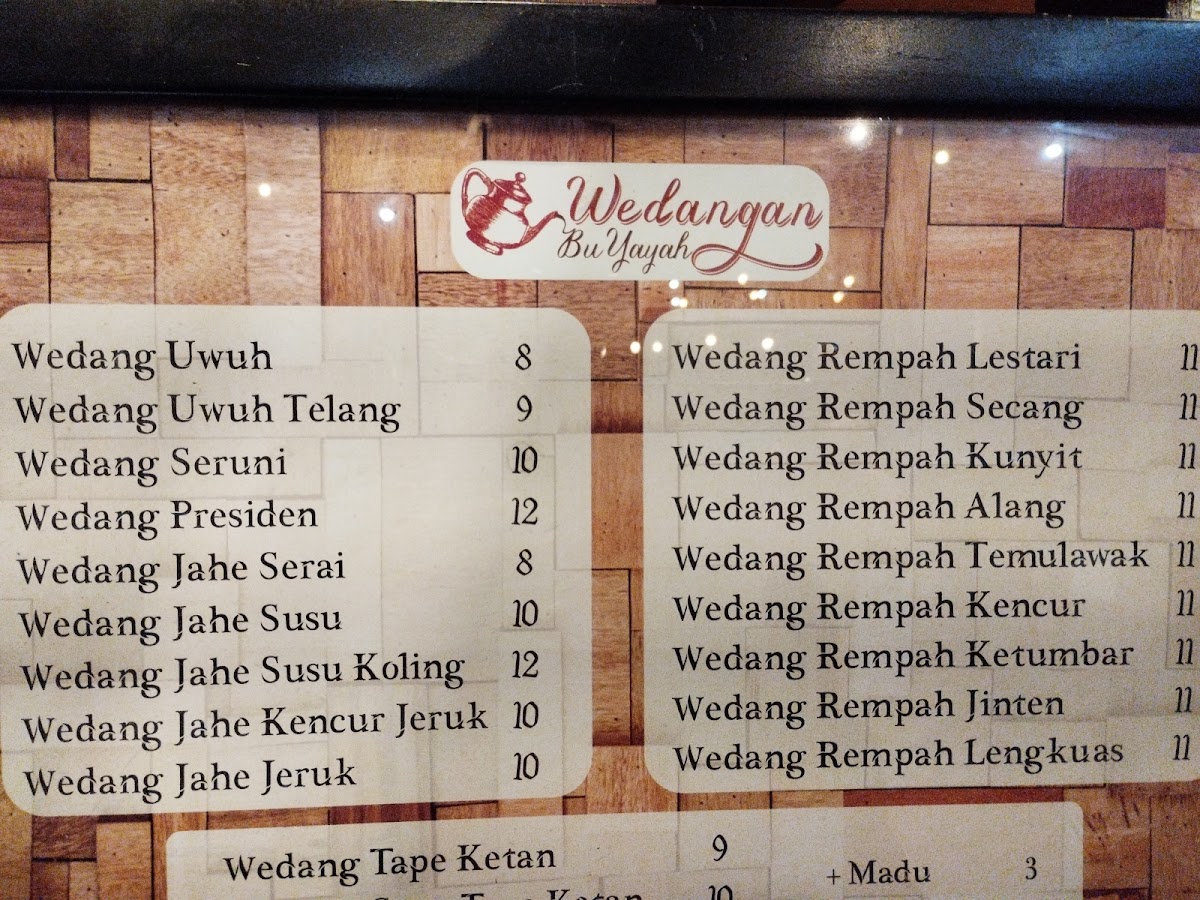 Wedangan
Bu Yayah
Wedang Uwuh 8
Wedang Uwuh Telang 9
Wedang Seruni 10
Wedang Presiden 12
Wedang Jahe Serai 8
Wedang Jahe Susu 10
Wedang Jahe Susu Koling 12
Wedang Jahe Kencur Jeruk 10
Wedang Jahe Jeruk 10
Wedang Rempah Lestari 11
Wedang Rempah Secang 11
Wedang Rempah Kunyit 11
Wedang Rempah Alang 11
Wedang Rempah Temulawak 11
Wedang Rempah Kencur 11
Wedang Rempah Ketumbar 11
Wedang Rempah Jinten 11
Wedang Rempah Lengkuas 11
Wedang Tape Ketan 9
+ Madu 3
Tape Ketan 10